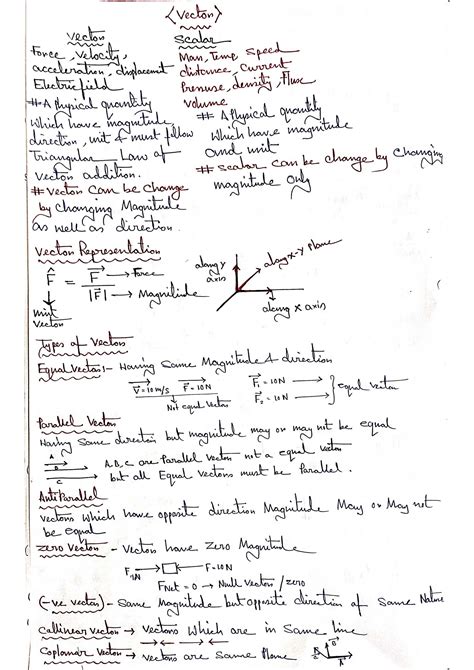 <Vector>
Vector
Force, Velocity,
acceleration, displacement
Electric field
# A physical quantity
which have magnitude,
direction, unit & must follow
Triangular Law of
Vector addition.
# Vector Can be Change
by Changing Magnitude
as well as direction.
Scalar
Mass, Temp, Speed
distance, Current
Pressure, density, Flux
Volume
# A Physical quantity
Which have magnitude
and unit
# Scalar can be change by Changing
magnitude only
Vector Representation
F̂ = F⃗ → Force
|F⃗| → Magnitude
Unit
Vector
along y
axis
along x-y plane
along x axis
Types of Vectors
Equal Vectors:- Having Same Magnitude & direction
V⃗=10m/s F⃗=10N
Not equal Vectors
F⃗₁ = 10N →
F⃗₂ = 10N →
} equal vector
Parallel Vector
Having Same direction but magnitude may or may not be equal
A
B
C
A, B, C are Parallel Vector - not a equal vector
but all Equal Vectors must be Parallel.
Anti Parallel
Vectors Which have opposite direction Magnitude May or May not
be equal
Zero Vector - Vector have Zero Magnitude
F → □ ← F=10N
10N
Fnet = 0 → Null Vector / zero
(-ve vector) - Same Magnitude but opposite direction of Same Nature
Collinear vector → vectors Which are in Same line
Coplanar Vector → vectors are Same Plane